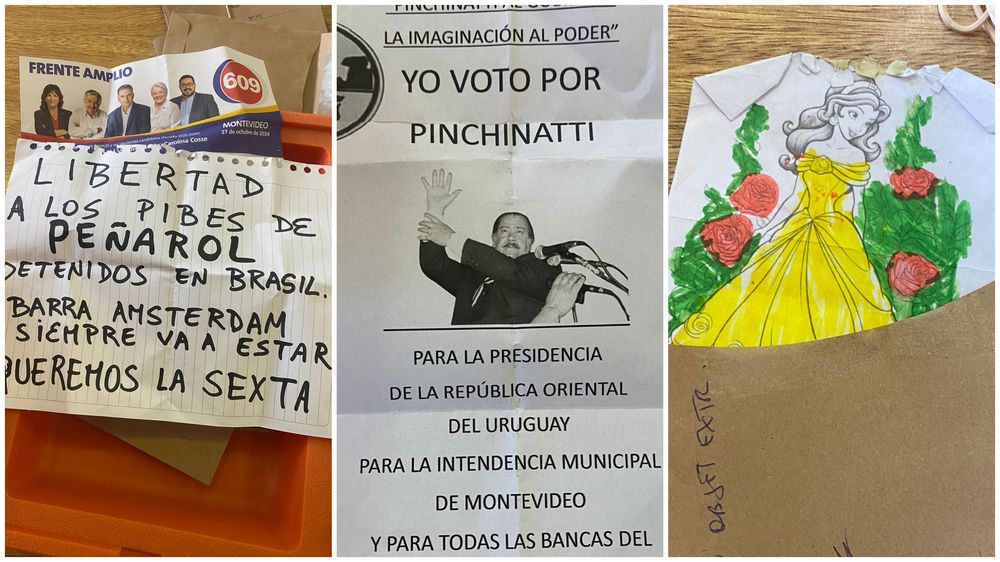 FRENTE AMPLIO
609
MONTEVIDEO
27 de octubre de 2024
Carolina Cosse
LIBERTAD
A LOS PIBES DE
PEÑAROL
DETENIDOS EN BRASIL.
BARRA AMSTERDAM
SIEMPRE VA A ESTAR
QUEREMOS LA SEXTA
LA IMAGINACIÓN AL PODER”
YO VOTO POR
PINCHINATTI
PARA LA PRESIDENCIA
DE LA REPÚBLICA ORIENTAL
DEL URUGUAY
PARA LA INTENDENCIA MUNICIPAL
DE MONTEVIDEO
Y PARA TODAS LAS BANCAS DEL
OBSET EXTR